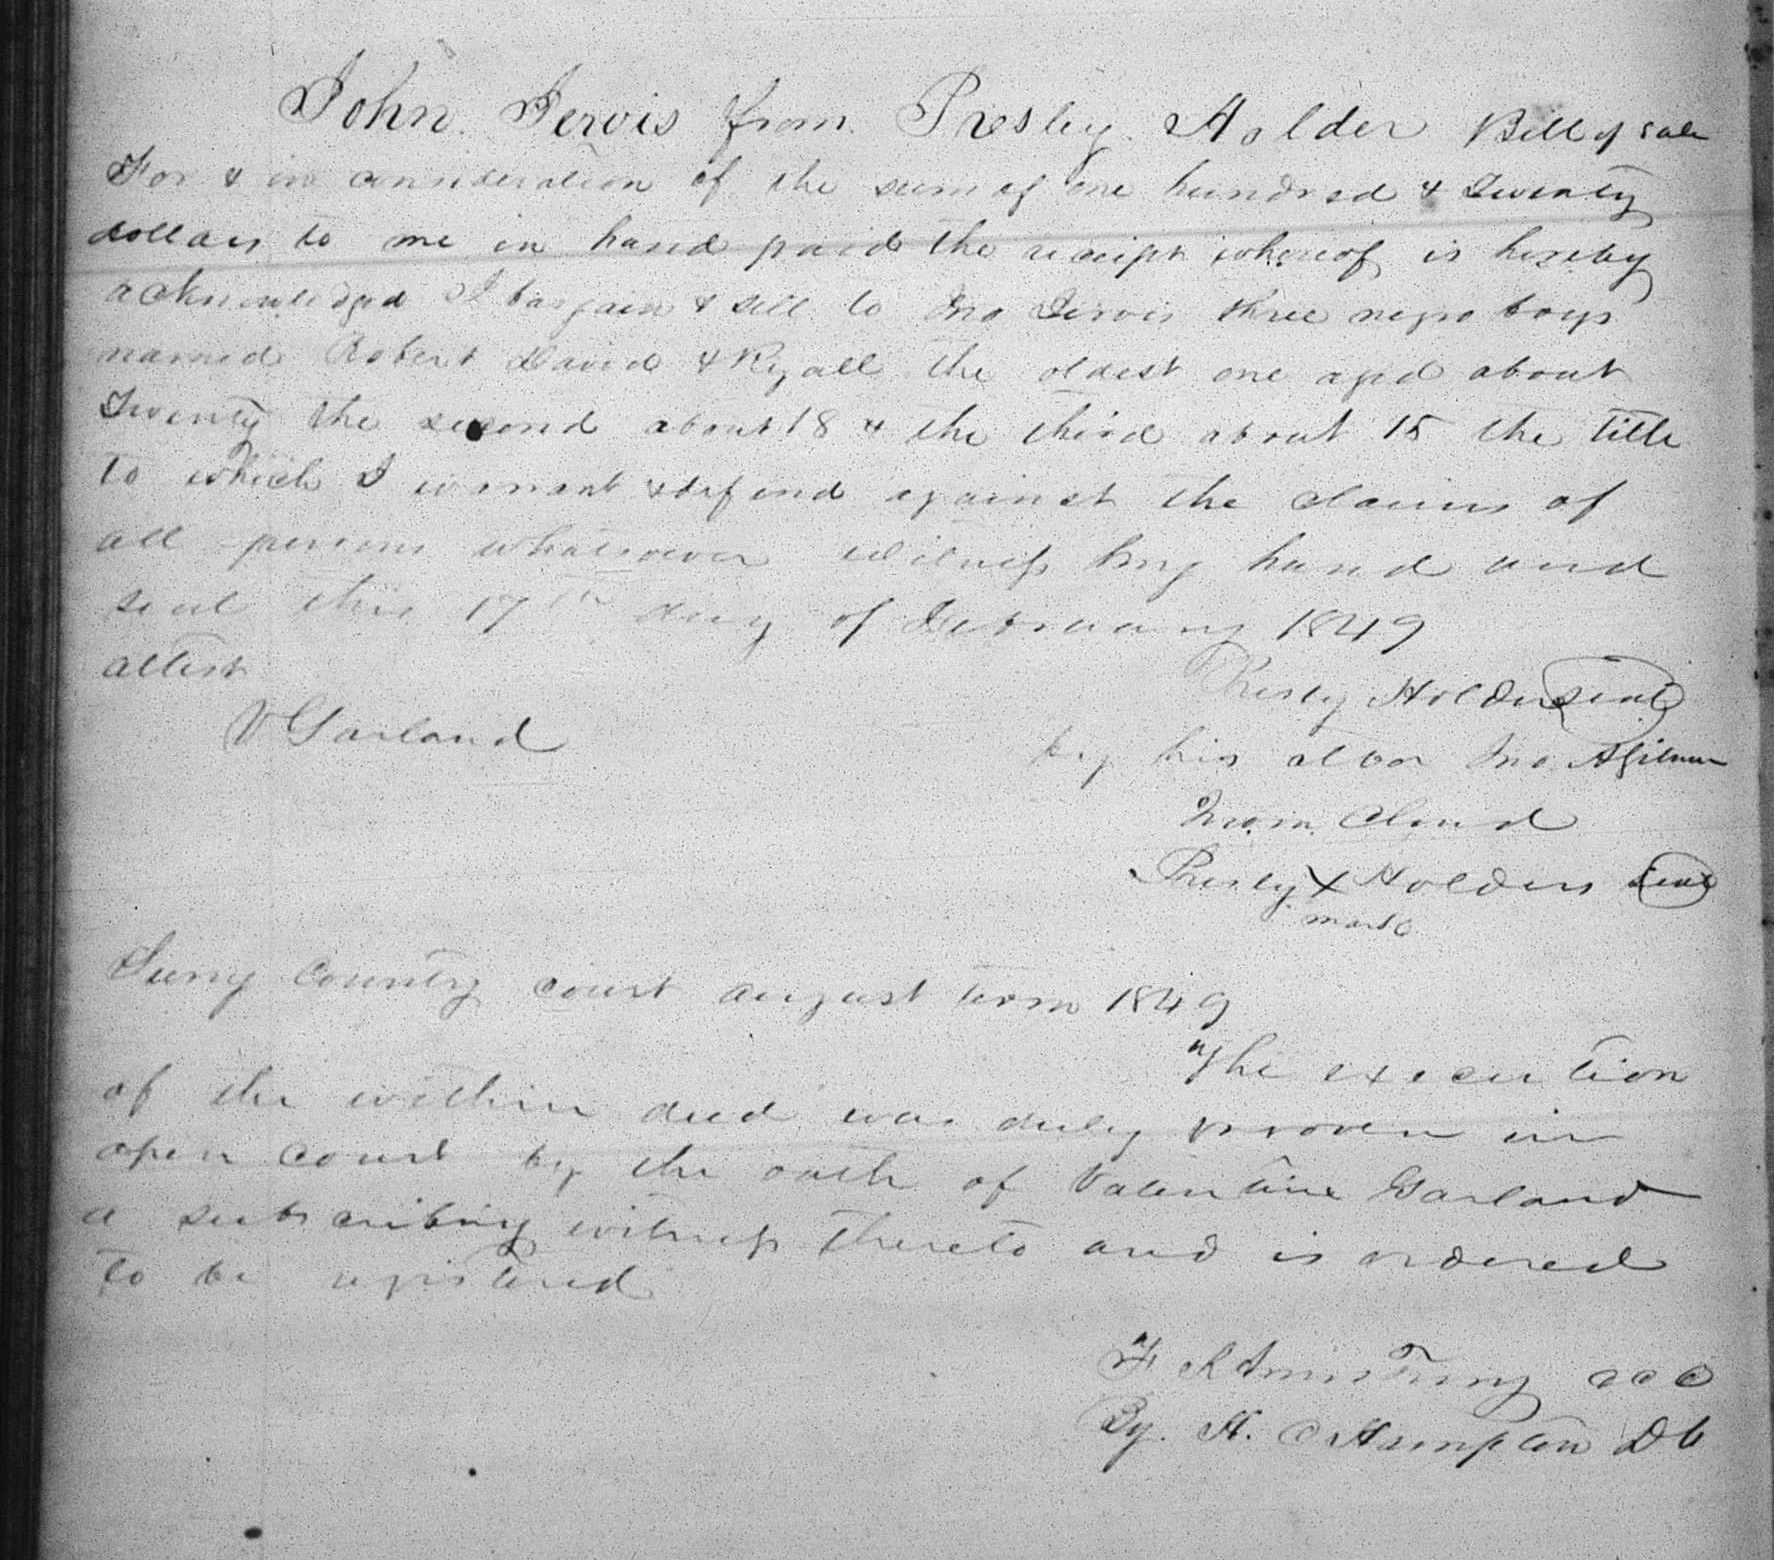 John Jervis from Presley Holder Bill of sale
For & in consideration of the sum of one hundred & Twenty
dollars to me in hand paid the receipt whereof is hereby
acknowledged I bargain & sell to Jno Jervis three negro boys
named Robert David & Ryall the oldest one aged about
Twenty the second about 18 & the third about 15 the title
to which I warrant & defend against the claims of
all persons whatsoever witness my hand and
seal this 17th day of February 1849
attest
Presly Holder seal
V Garland
by his attor Jno
Cloud
Presly X Holders seal
mark
Surry County court august term 1849
The execution
of the within deed was duly proven in
open court by the oath of Valentine Garland
a subscribing witness thereto and is ordered
to be registered
F K Armstrong CCC
By. H. C Hampton DC